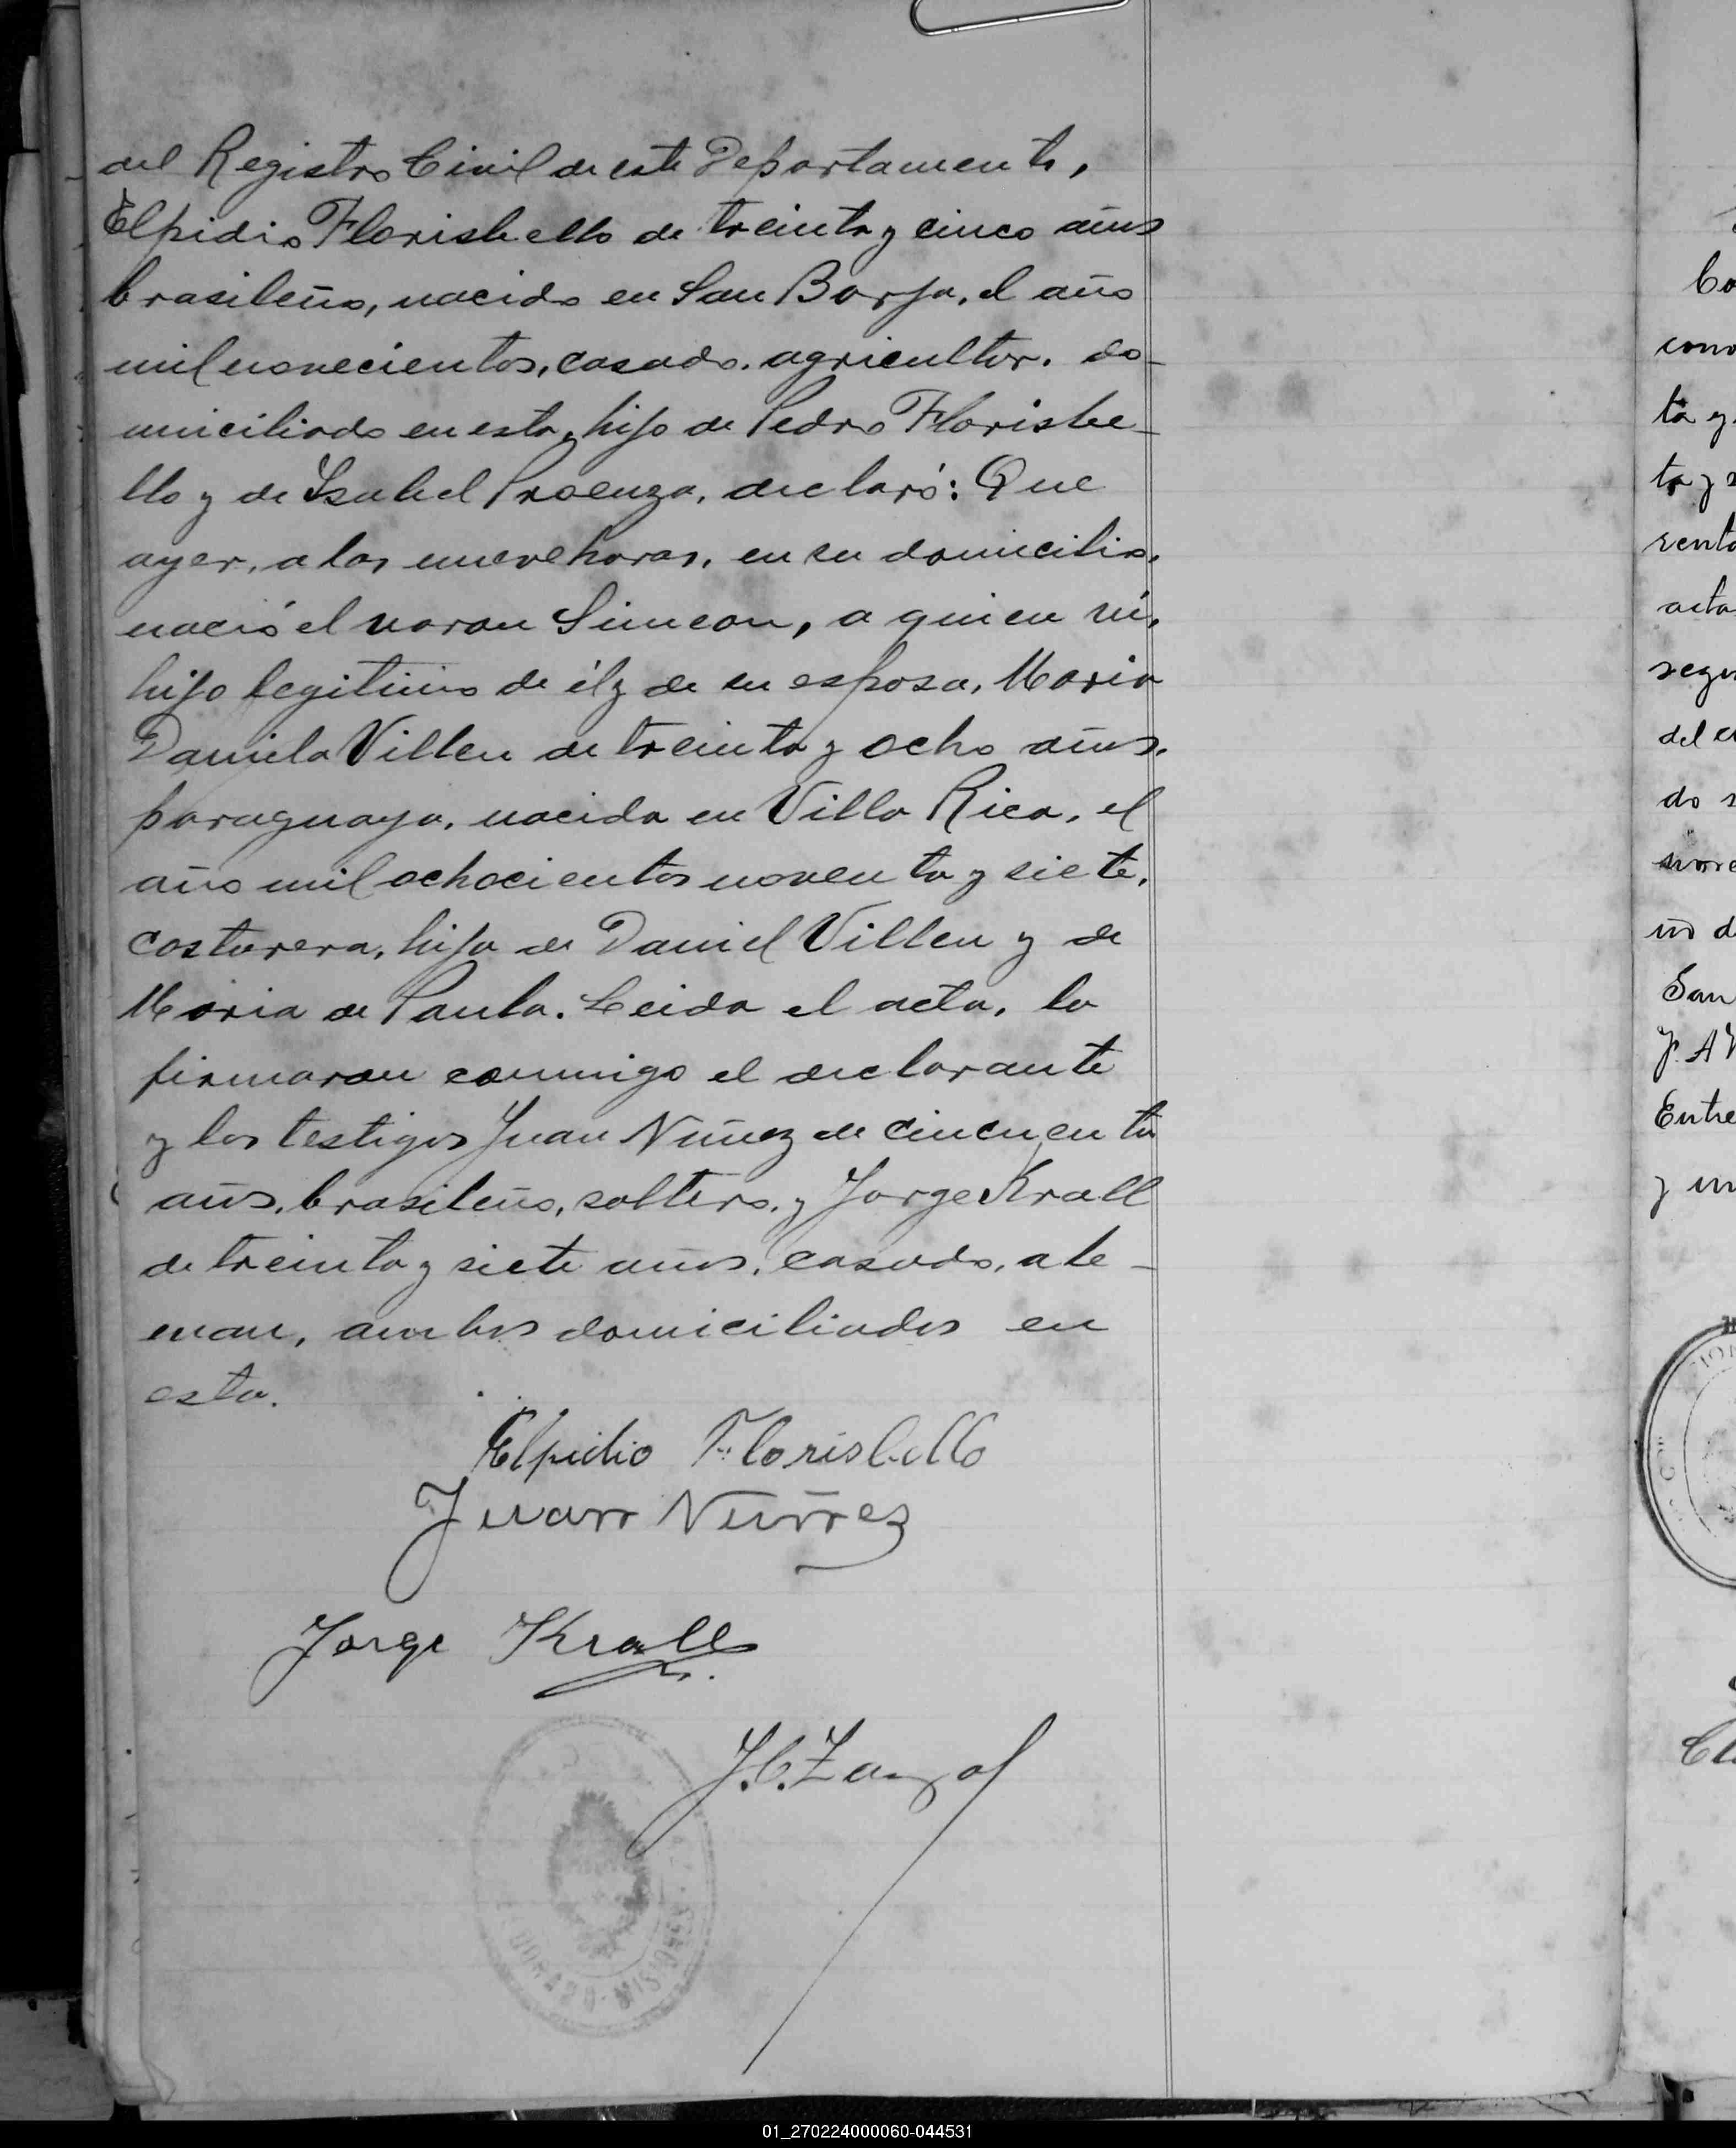 del Registro Civil de este Departamento,
Elpidio Florisbello de treinta y cinco años
brasileño, nacido en San Borja, el año
mil novecientos, casado, agricultor, do-
miciliado en esta, hijo de Pedro Florisbe-
llo y de Isabel Proenza, declaró: Que
ayer, a las nueve horas, en su domicilio,
nació el varon Simeon, a quien vi,
hijo legitimo de él y de su esposa, Maria
Daniela Villen de treinta y ocho años,
paraguaya, nacida en Villa Rica, el
año mil ochocientos noventa y siete,
costurera, hija de Daniel Villen y de
Maria de Paula. Leida el acta, la
firmaron conmigo el declarante
y los testigos Juan Nuñez de cincuenta
años, brasileño, soltero, y Jorge Krall
de treinta y siete años, casado, ale-
man, ambos domiciliados en
esta.
Elpidio Florisbello
Juan Nuñez
Jorge Krall
MISIONES
del
do
San
Entre
01_270224000060-044531